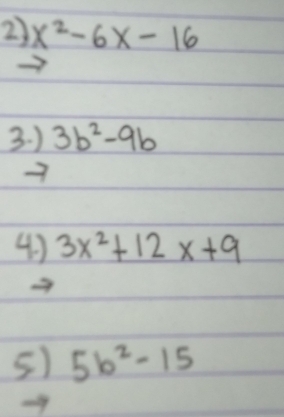 2) x² - 6x - 16
→
3.) 3b² - 9b
→
4.) 3x² + 12x + 9
→
5) 5b² - 15
→